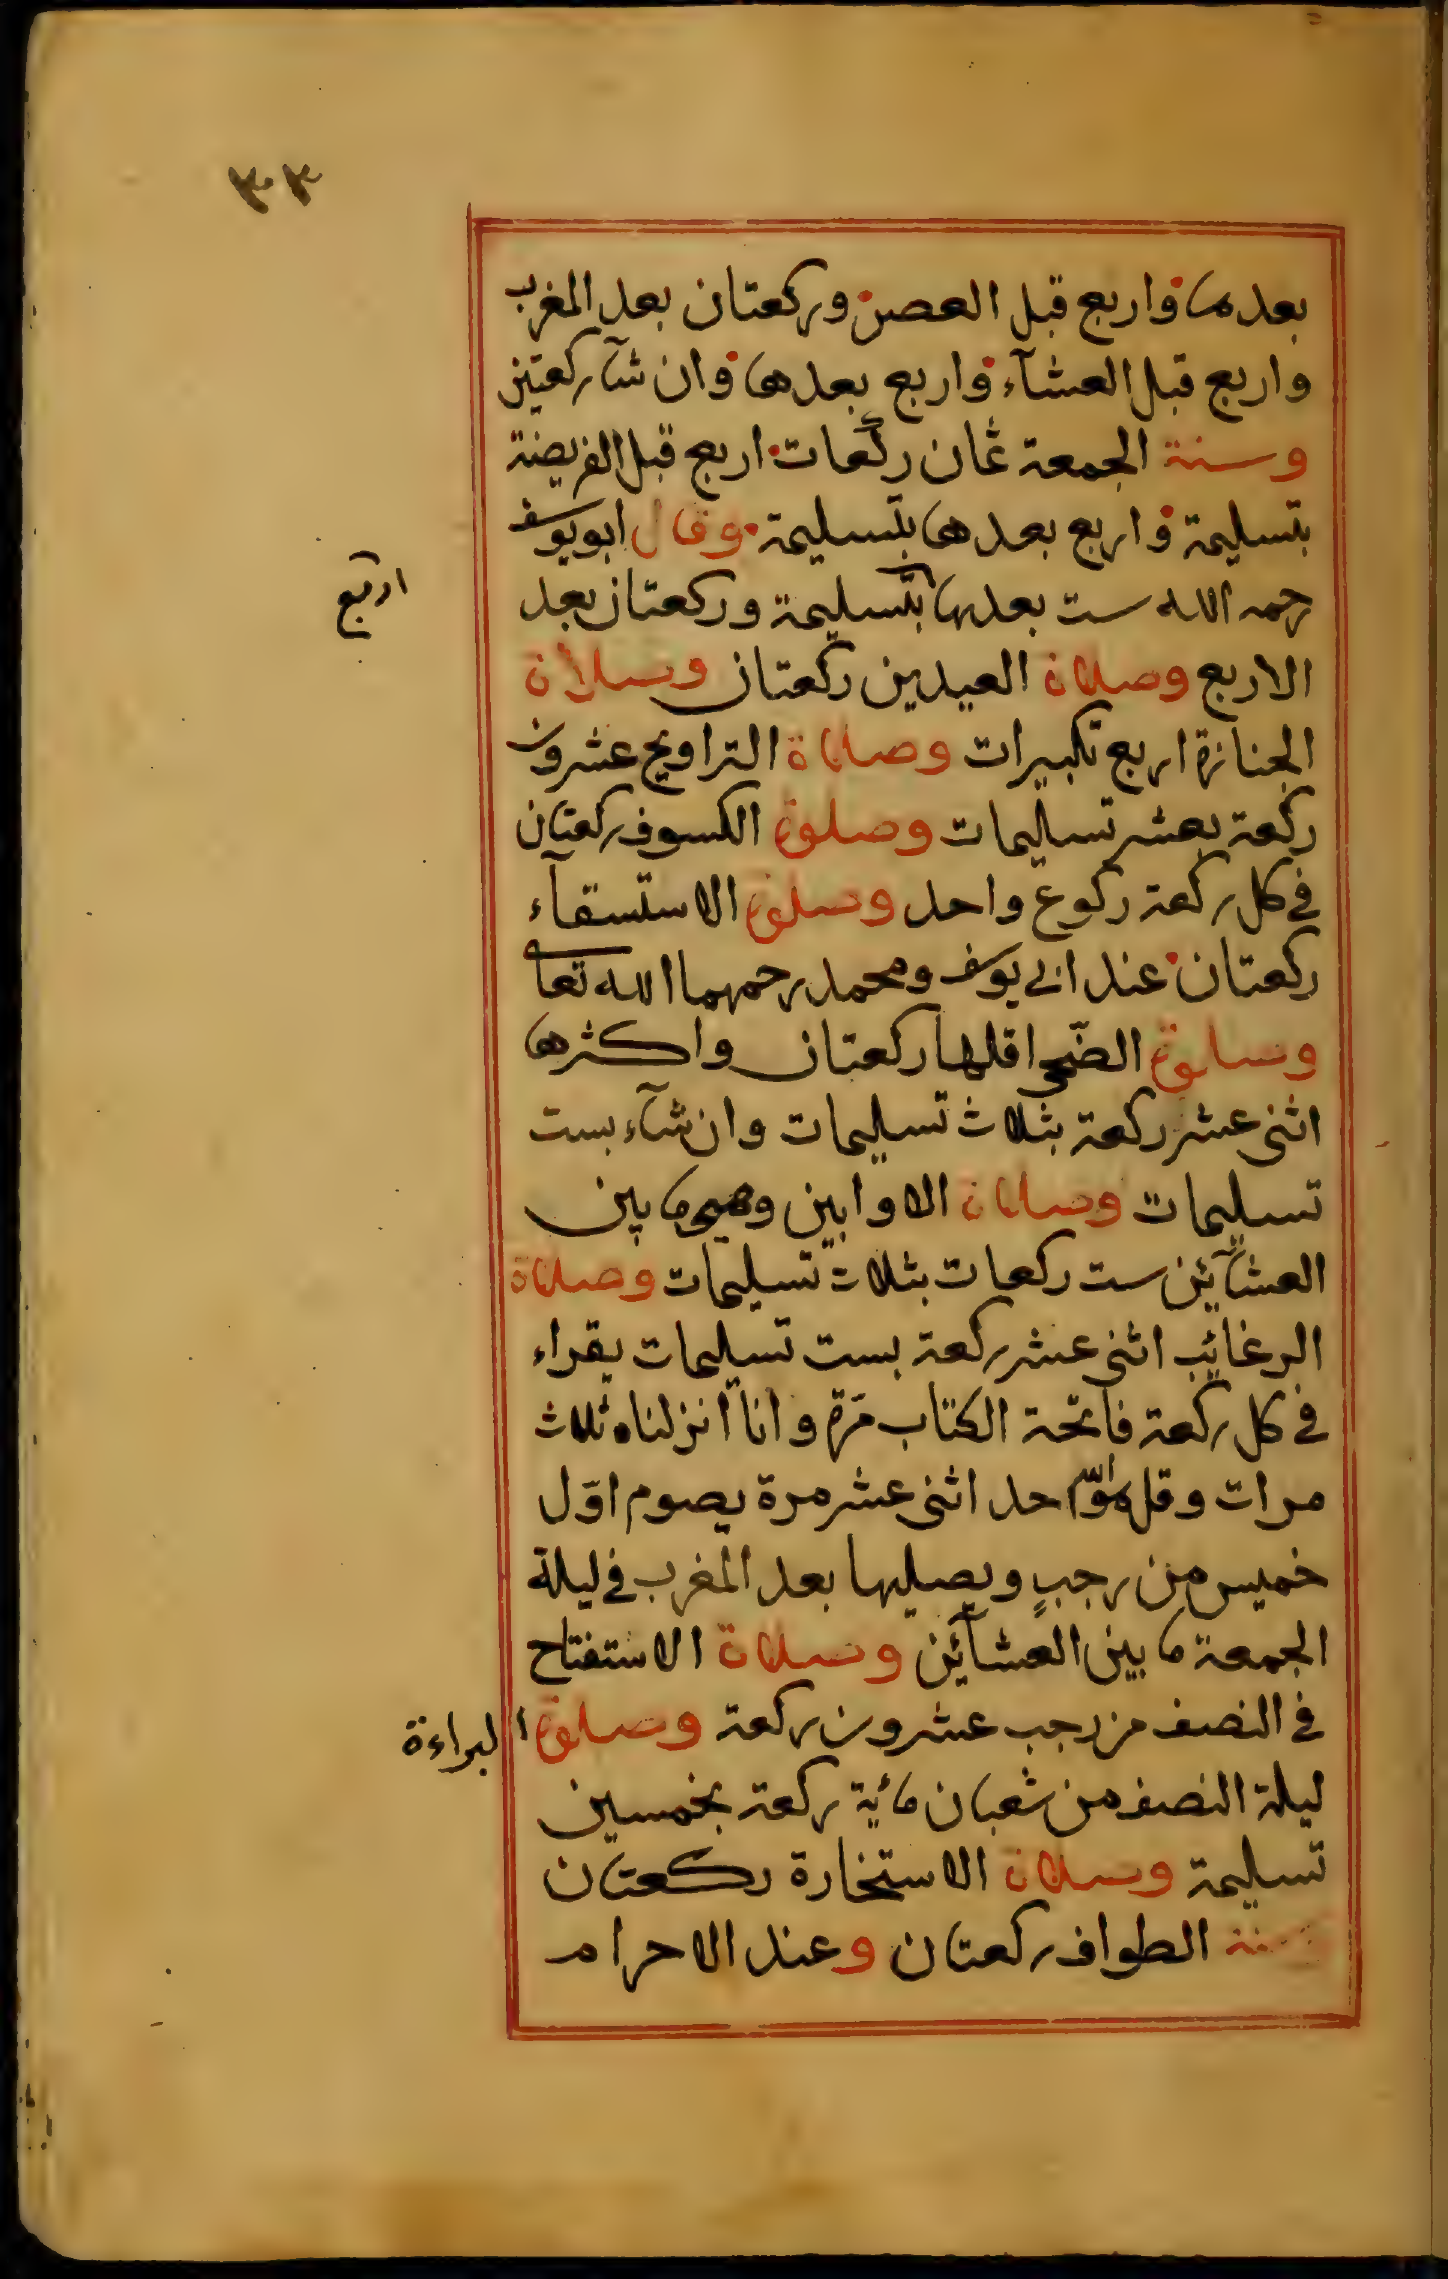 ٣٣
بعدها واربع قبل العصر وركعتان بعد المغرب
واربع قبل العشآء واربع بعدها وان شآ ركعتين
وسنة الجمعة ثمان ركعات اربع قبل الفريضة
بتسليمة واربع بعدها بتسليمة وقال ابويوسف
رحمه الله ست بعدها بتسليمة وركعتان بعد
اربع
الاربع وصلاة العيدين ركعتان وصلاة
الجنازة اربع تكبيرات وصلاة التراويح عشرون
ركعة بعشر تسليمات وصلوة الكسوف ركعتان
في كل ركعة ركوع واحد وصلوة الاستسقآء
ركعتان عند ابي يوسف ومحمد رحمهما الله تعا
وصلوة الضّحى اقلها ركعتان واكثرها
اثنى عشر ركعة بثلاث تسليمات وان شآء بست
تسليمات وصلاة الاوابين وهي ما بين
العشآئين ست ركعات بثلاث تسليمات وصلاة
الرغائب اثنى عشر ركعة بست تسليمات يقراء
في كل ركعة فاتحة الكتاب مرّة وانا انزلناه ثلاث
مرات وقل هو الله احد اثنى عشر مرة يصوم اوّل
خميس من رجبٍ ويصليها بعد المغرب في ليلة
الجمعة ما بين العشآئين وصلاة الاستفتاح
في النصف من رجب عشرون ركعة وصلوة البراءة
ليلة النصف من شعبان مائة ركعة بخمسين
تسليمة وصلاة الاستخارة ركعتان
وسنة الطواف ركعتان وعند الاحرام